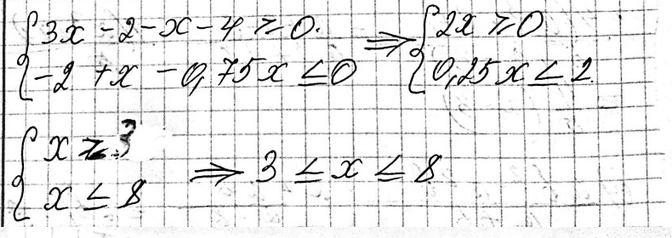 { 3x - 2 - x - 4 ≥ 0. ⇒ { 2x ≥ 0
{ -2 + x - 0,75x ≤ 0 { 0,25x ≤ 2
{ x ≥ 3
{ x ≤ 8 ⇒ 3 ≤ x ≤ 8